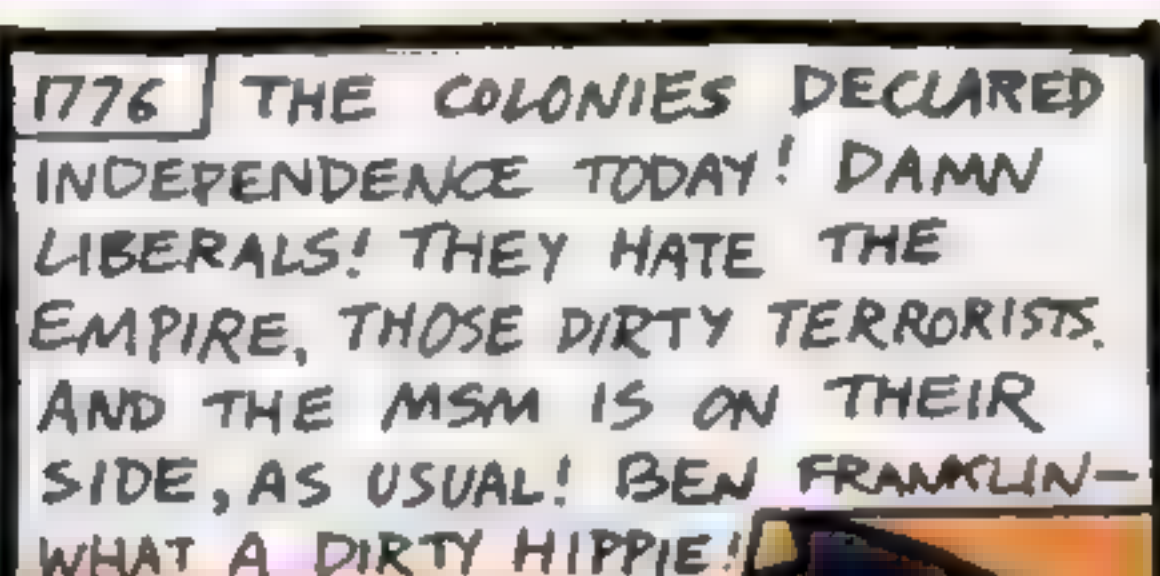 1776 THE COLONIES DECLARED
INDEPENDENCE TODAY! DAMN
LIBERALS! THEY HATE THE
EMPIRE, THOSE DIRTY TERRORISTS.
AND THE MSM IS ON THEIR
SIDE, AS USUAL! BEN FRANKLIN-
WHAT A DIRTY HIPPIE!